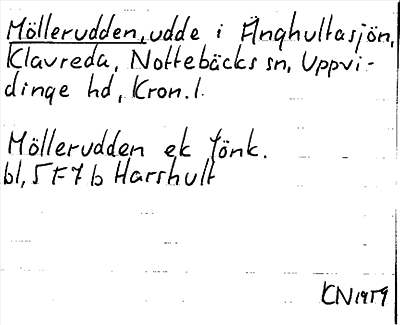 Möllerudden, udde i Änghultasjön,
Klavreda, Nottebäcks sn, Uppvi-
dinge hd, Kron. l.
Möllerudden ek fönk.
bl, 5F7b Harshult
KN 1959